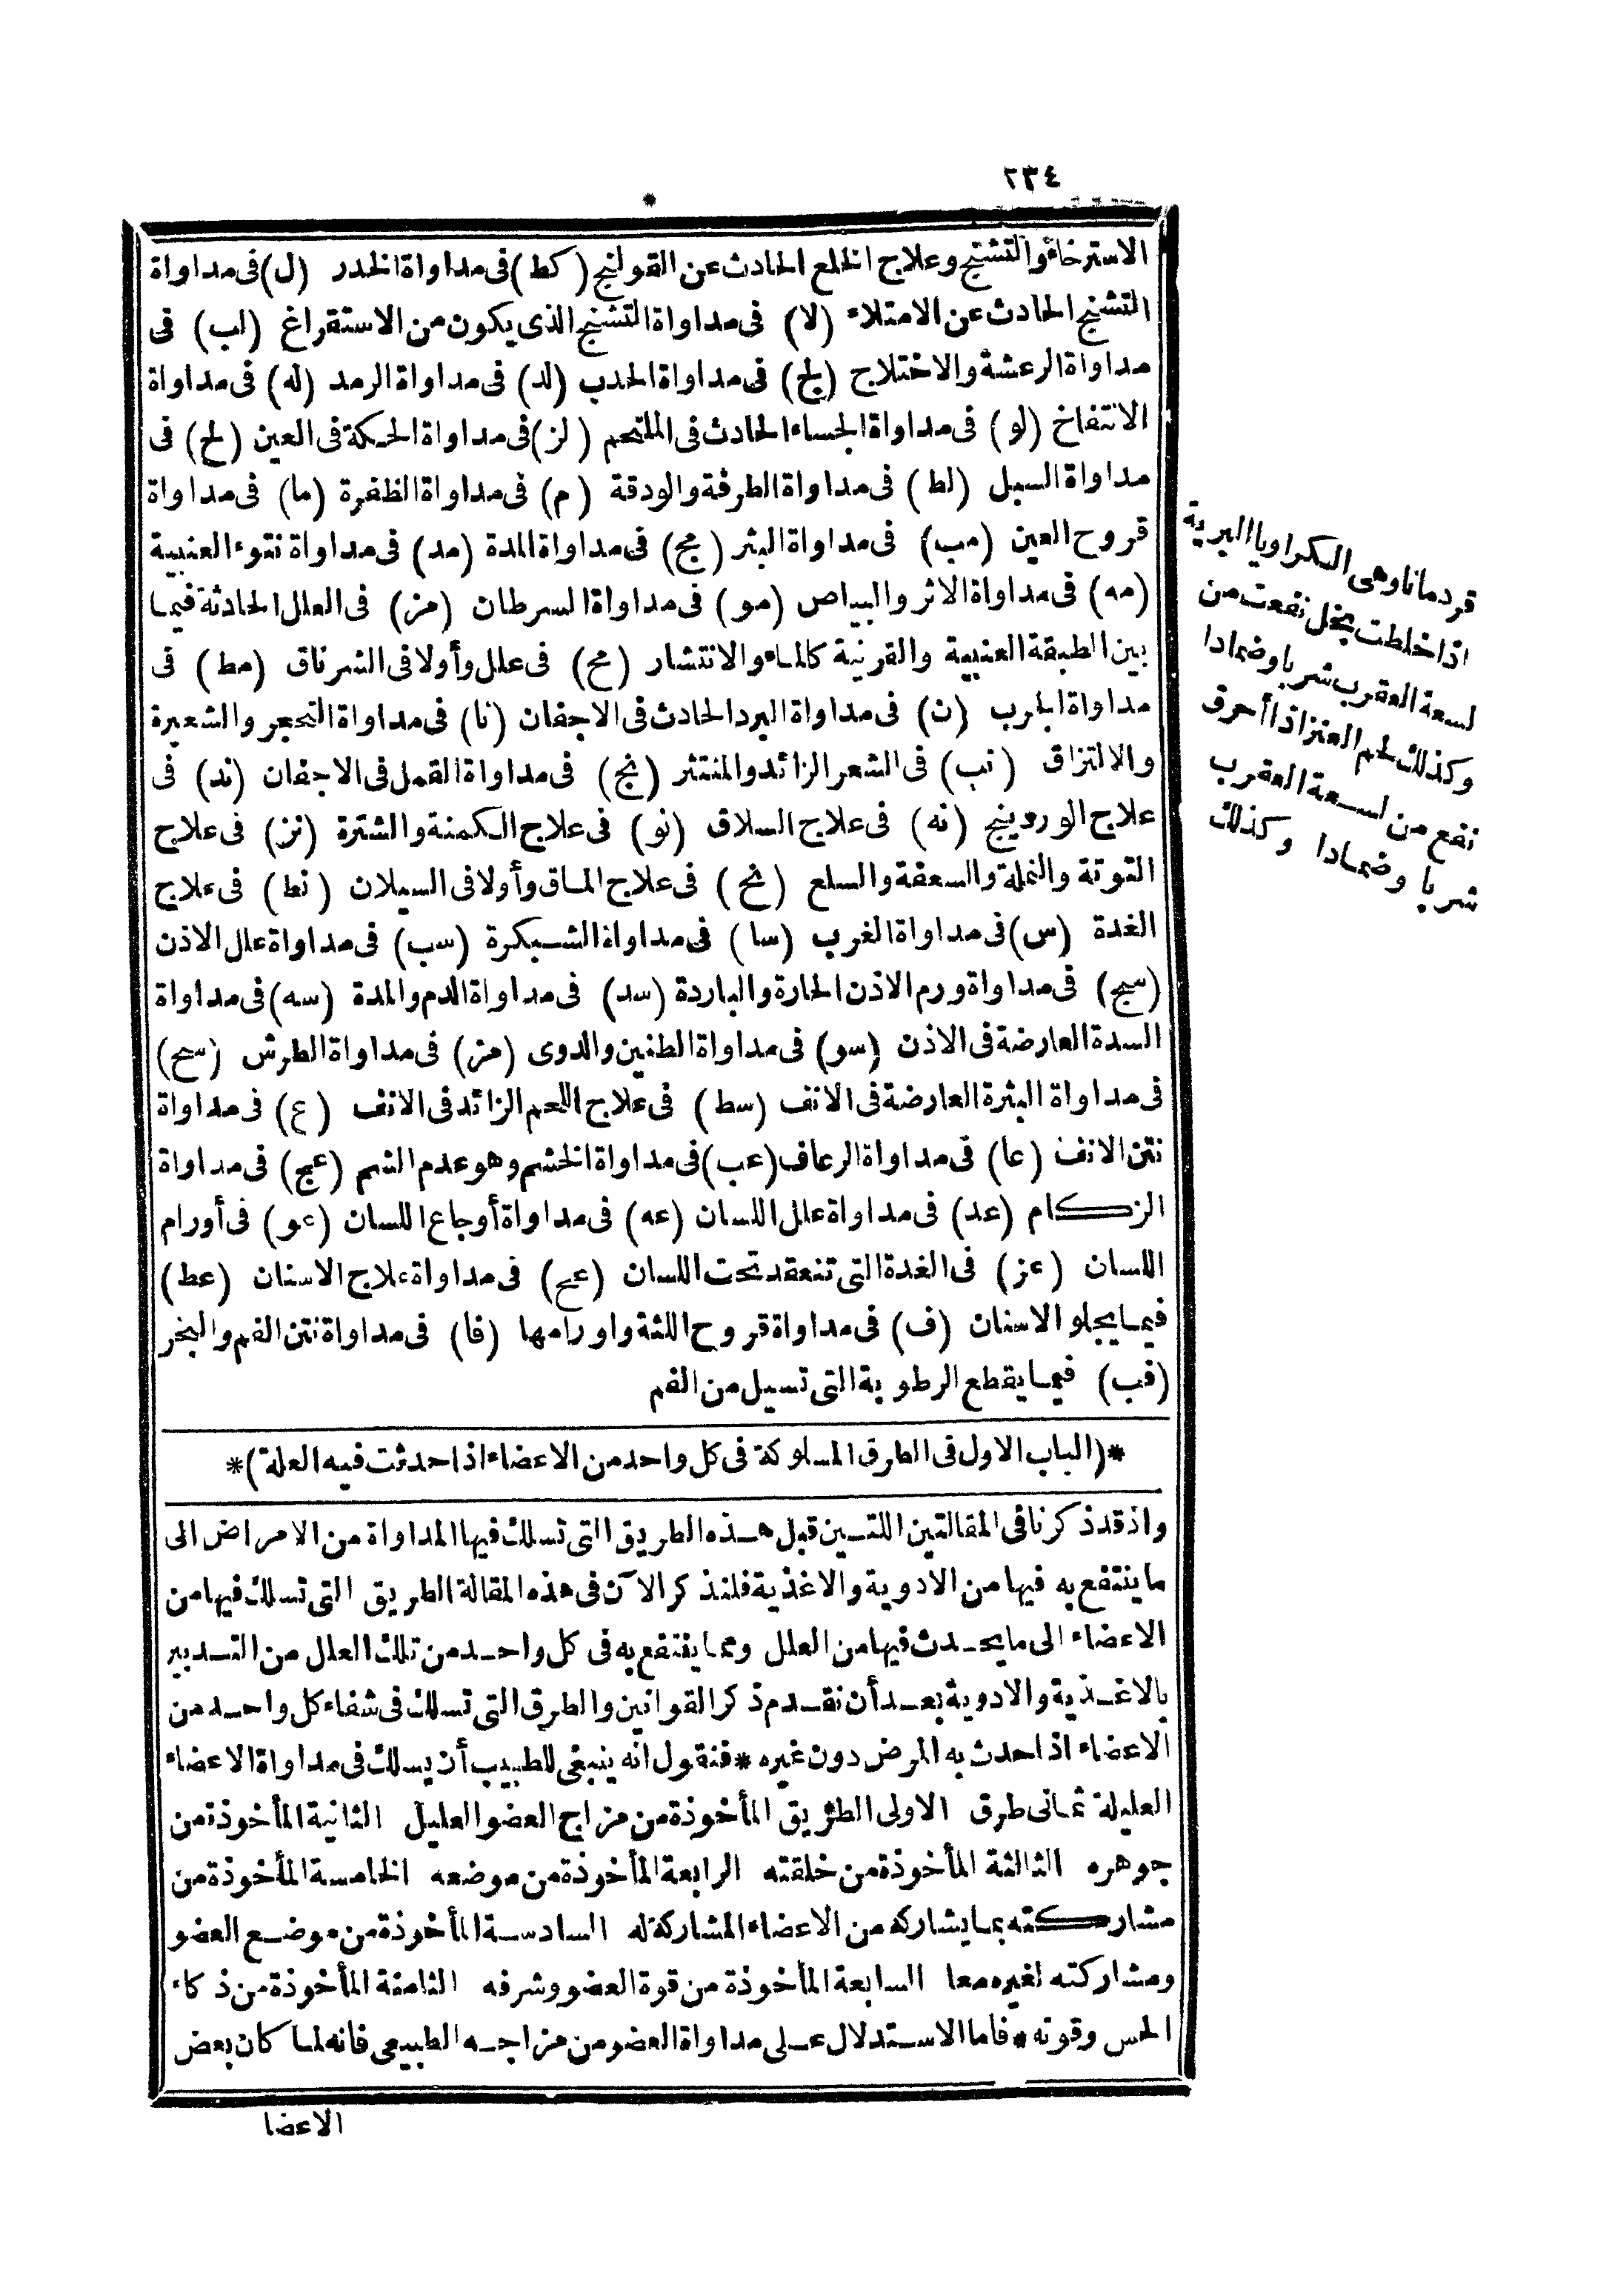 ٢٣٤
*
الاسترخاء والتشنج وعلاج الخلع الحادث عن القولنج (كط) فى مداواة الخدر (ل) فى مداواة
التشنج الحادث عن الامتلاء (لا) فى مداواة التشنج الذى يكون من الاستفراغ (لب) فى
مداواة الرعشة والاختلاج (لج) فى مداواة الحدب (لد) فى مداواة الرمد (له) فى مداواة
الانتفاخ (لو) فى مداواة الجساء الحادث فى الملتحم (لز) فى مداواة الحكة فى العين (لح) فى
مداواة السبل (لط) فى مداواة الطرفة والودقة (م) فى مداواة الظفرة (ما) فى مداواة
قروح العين (مب) فى مداواة البثر (مج) فى مداواة المدة (مد) فى مداواة نتوء العنبية
(مه) فى مداواة الاثر والبياض (مو) فى مداواة السرطان (مز) فى العلل الحادثة فيما
بين الطبقة العنبية والقرنية كالماء والانتشار (مح) فى علل وأولا فى الشرناق (مط) فى
مداواة الجرب (ن) فى مداواة البرد الحادث فى الاجفان (نا) فى مداواة التحجر والشعيرة
والالتزاق (نب) فى الشعر الزائد والمنتثر (نج) فى مداواة القمل فى الاجفان (ند) فى
علاج الوردينج (نه) فى علاج السلاق (نو) فى علاج الكمنة والشترة (نز) فى علاج
التوتة والنملة والسعفة والسلع (نح) فى علاج الماق وأولا فى السيلان (نط) فى علاج
الغدة (س) فى مداواة الغرب (سا) فى مداواة الشبكرة (سب) فى مداواة علل الاذن
(سج) فى مداواة ورم الاذن الحارة والباردة (سد) فى مداواة الدم والمدة (سه) فى مداواة
السدة العارضة فى الاذن (سو) فى مداواة الطنين والدوى (مز) فى مداواة الطرش (سح)
فى مداواة البثرة العارضة فى الانف (سط) فى علاج اللحم الزائد فى الانف (ع) فى مداواة
نتن الانف (عا) فى مداواة الرعاف (عب) فى مداواة الخشم وهو عدم الشم (عج) فى مداواة
الزكام (عد) فى مداواة علل اللسان (عه) فى مداواة أوجاع اللسان (عو) فى أورام
اللسان (عز) فى الغدة التى تنعقد تحت اللسان (عح) فى مداواة علاج الاسنان (عط)
فيما يجلو الاسنان (ف) فى مداواة قروح اللثة واورامها (فا) فى مداواة نتن الفم والبخر
(فب) فيما يقطع الرطوبة التى تسيل من الفم
*(الباب الاول فى الطرق المسلوكة فى كل واحد من الاعضاء اذا حدثت فيه العلة)*
واذ قد ذكرنا فى المقالتين اللتين قبل هذه الطريق التى تسلك فيها المداواة من الامراض الى
ما ينتفع به فيها من الادوية والاغذية فلنذكر الآن فى هذه المقالة الطريق التى تسلك فيها من
الاعضاء الى ما يحدث فيها من العلل ومما ينتفع به فى كل واحد من تلك العلل من التدبير
بالاغذية والادوية بعد أن نقدم ذكر القوانين والطرق التى تسلك فى شفاء كل واحد من
الاعضاء اذا حدث به المرض دون غيره * فنقول انه ينبغى للطبيب أن يسلك فى مداواة الاعضاء
العليلة ثمانى طرق الاولى الطريق المأخوذة من مزاج العضو العليل الثانية المأخوذة من
جوهره الثالثة المأخوذة من خلقته الرابعة المأخوذة من موضعه الخامسة المأخوذة من
مشاركته بما يشاركه من الاعضاء المشاركة له السادسة المأخوذة من موضع العضو
ومشاركته لغيره معا السابعة المأخوذة من قوة العضو وشرفه الثامنة المأخوذة من ذكاء
الحس وقوته * فاما الاستدلال على مداواة العضو من مزاجه الطبيعى فانه لما كان بعض
الاعضا
قردمانا وهى الكراويا البرية
اذا خلطت بخل نفعت من
لسعة العقرب شربا وضمادا
وكذلك لحم العنز اذا أحرق
نفع من لسعة العقرب
شربا وضمادا وكذلك